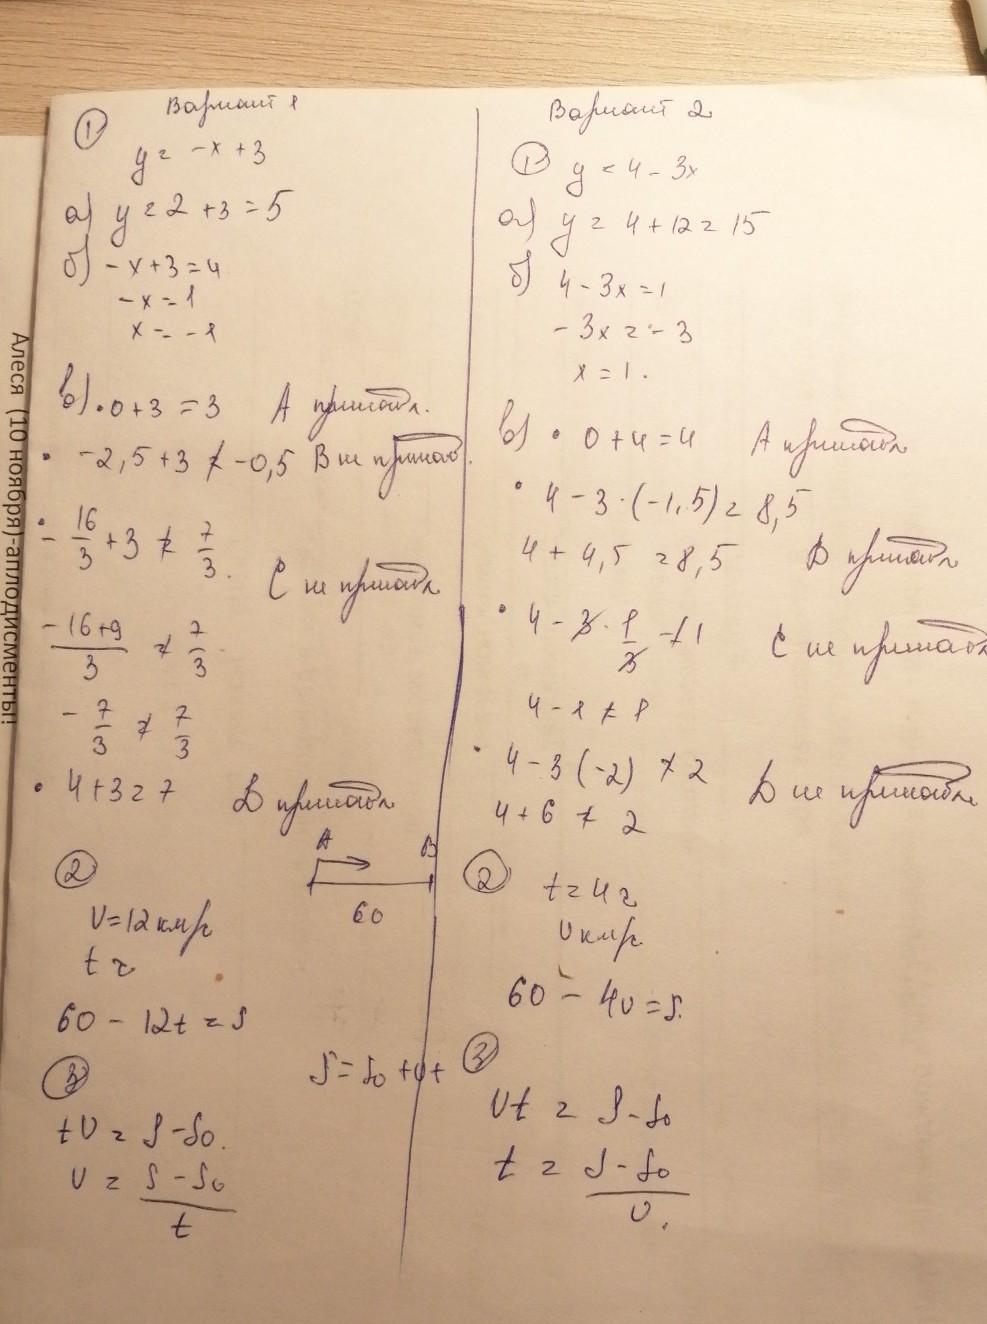 Вариант 1
① y = -x + 3
а) y = 2 + 3 = 5
б) -x + 3 = 4
-x = 1
x = -1
в) • 0 + 3 = 3 А принадл.
• -2,5 + 3 ≠ -0,5 В не принад.
• -16/3 + 3 ≠ 7/3.
С не принадл
(-16+9)/3 ≠ 7/3
-7/3 ≠ 7/3
• 4 + 3 = 7 D принадл
②
А В
60
V = 12 км/ч
t ч
60 - 12t = S
③
S = S₀ + vt
tV = S - S₀.
V = (S - S₀)/t
Вариант 2
① y = 4 - 3x
а) y = 4 + 12 = 15
б) 4 - 3x = 1
-3x = -3
x = 1.
в) • 0 + 4 = 4 А принадл
• 4 - 3 · (-1,5) = 8,5
4 + 4,5 = 8,5 В принадл
• 4 - 3 · 1/3 ≠ 1 С не принадл
4 - 1 ≠ 1
• 4 - 3 (-2) ≠ 2 D не принадл.
4 + 6 ≠ 2
② t = 4 ч
V км/ч
60 - 4V = S.
③
Vt = S - S₀
t = (S - S₀)/V.
Алеся (10 ноября)-аплодисменты!